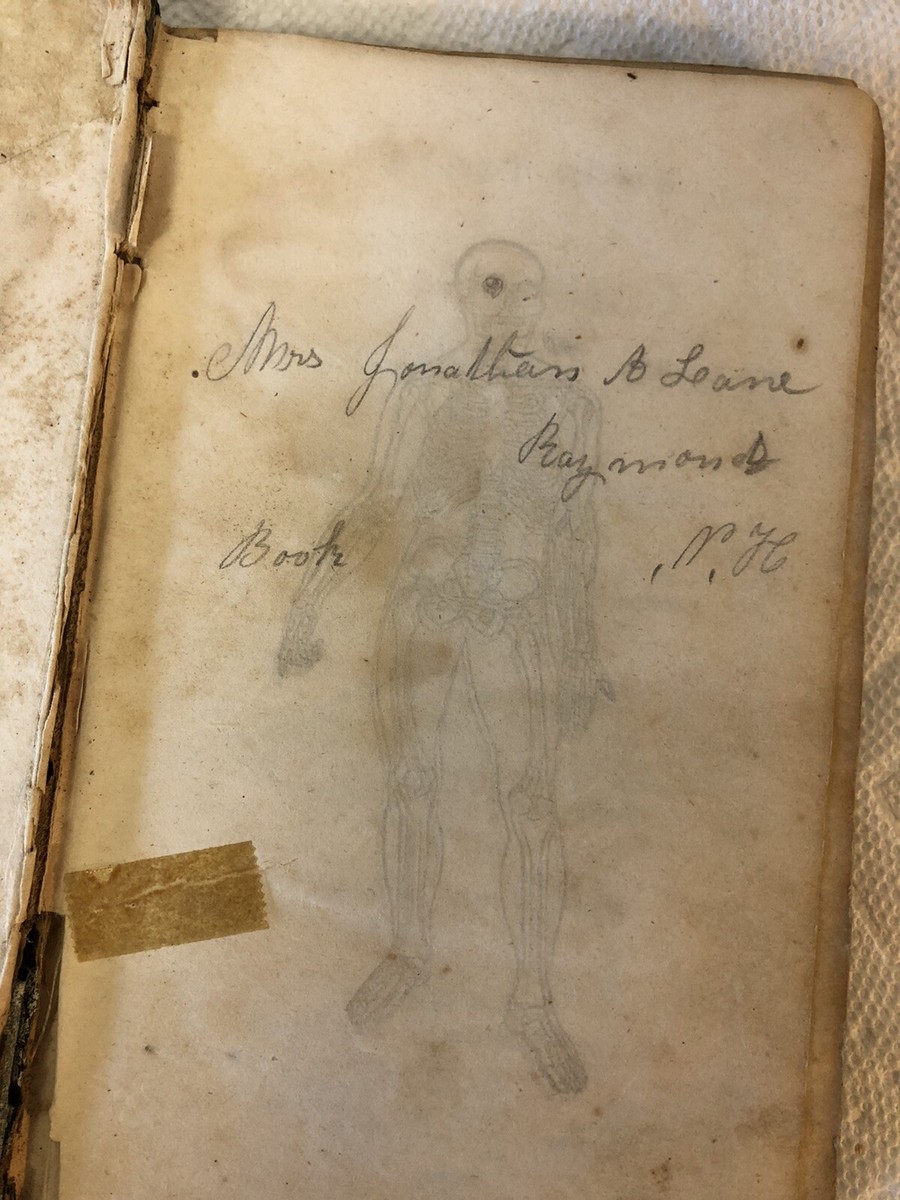 Mrs Jonathan A Lane
Raymond
Book , N. H